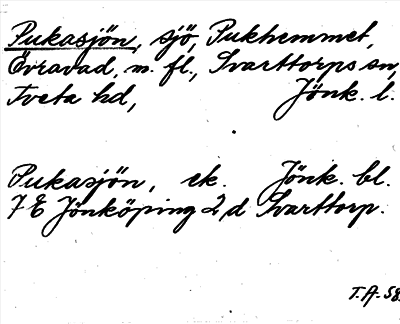 Pukasjön, sjö, Pukhemmet,
Övravad, m. fl., Svarttorps sn,
Tveta hd, Jönk. l.
Pukasjön, ek. Jönk. bl.
7 E Jönköping 2 d Svarttorp.
T.A. 58